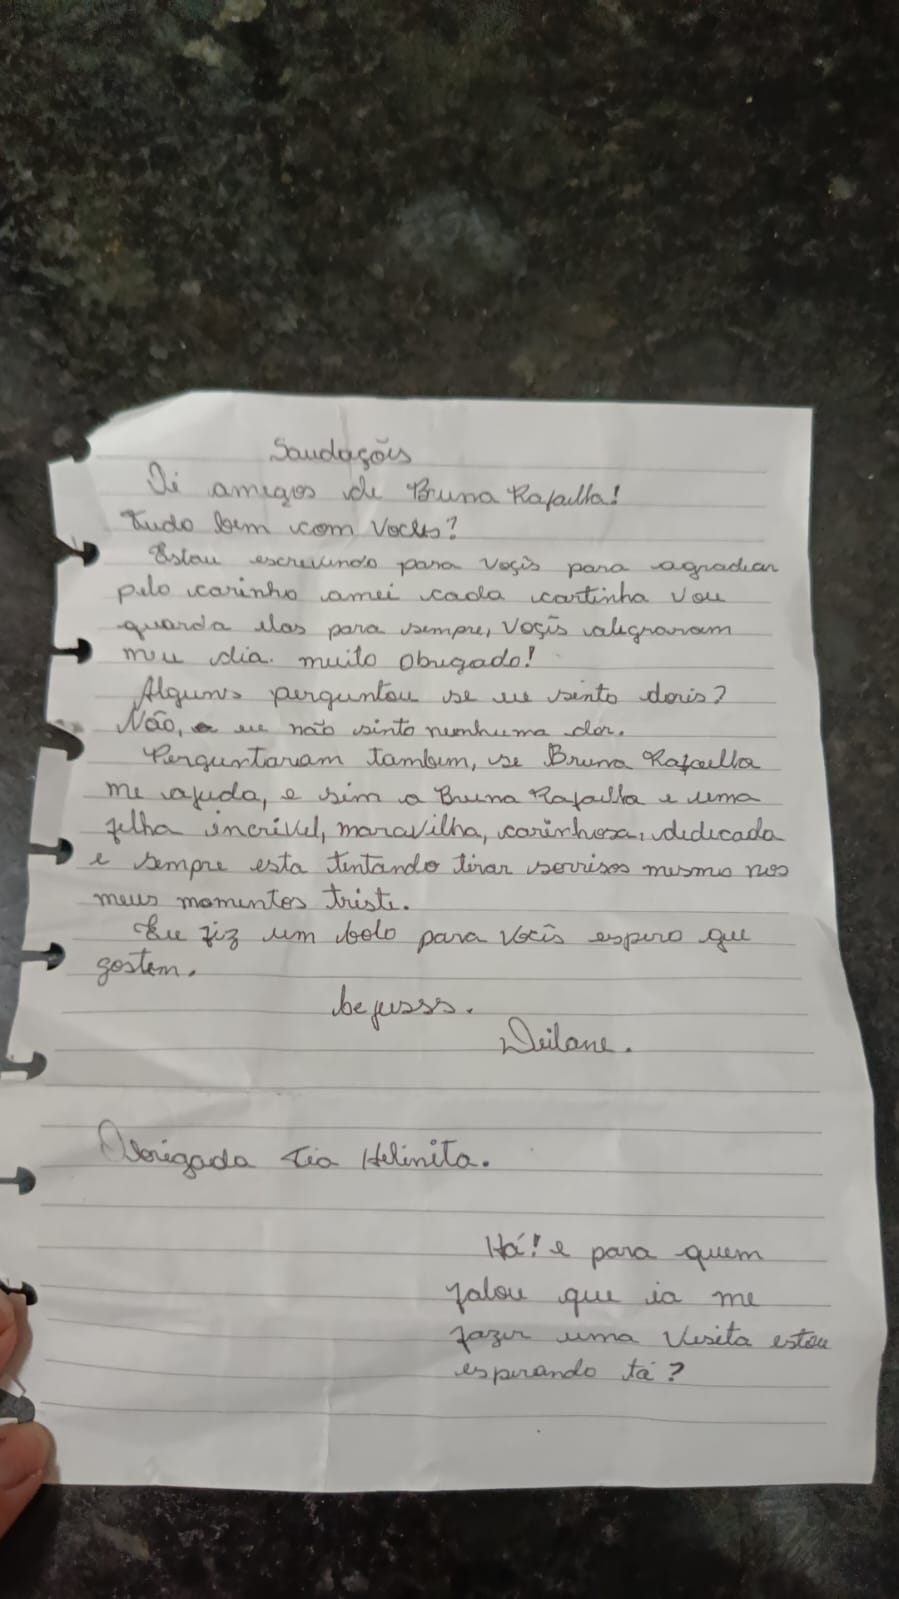 Saudações
Oi amigos de Bruna Rafaella!
Tudo bem com vocês?
Estou escrevendo para voçês para agradecer
pelo carinho amei cada cartinha vou
guarda elas para sempre, voçês alegraram
meu dia. muito obrigado!
Alguns perguntou se eu sinto dores?
Não, eu não sinto nenhuma dor.
Perguntaram tambem, se Bruna Rafaella
me ajuda, e sim a Bruna Rafaella e uma
filha incrivel, maravilha, carinhosa, dedicada
e sempre esta tentando tirar sorrisos mesmo nos
meus momentos triste.
Eu fiz um bolo para vocês espero que
gostem.
bejusss.
Deilane.
Obrigada tia Helinita.
Há! e para quem
falou que ia me
fazer uma visita estou
esperando tá?